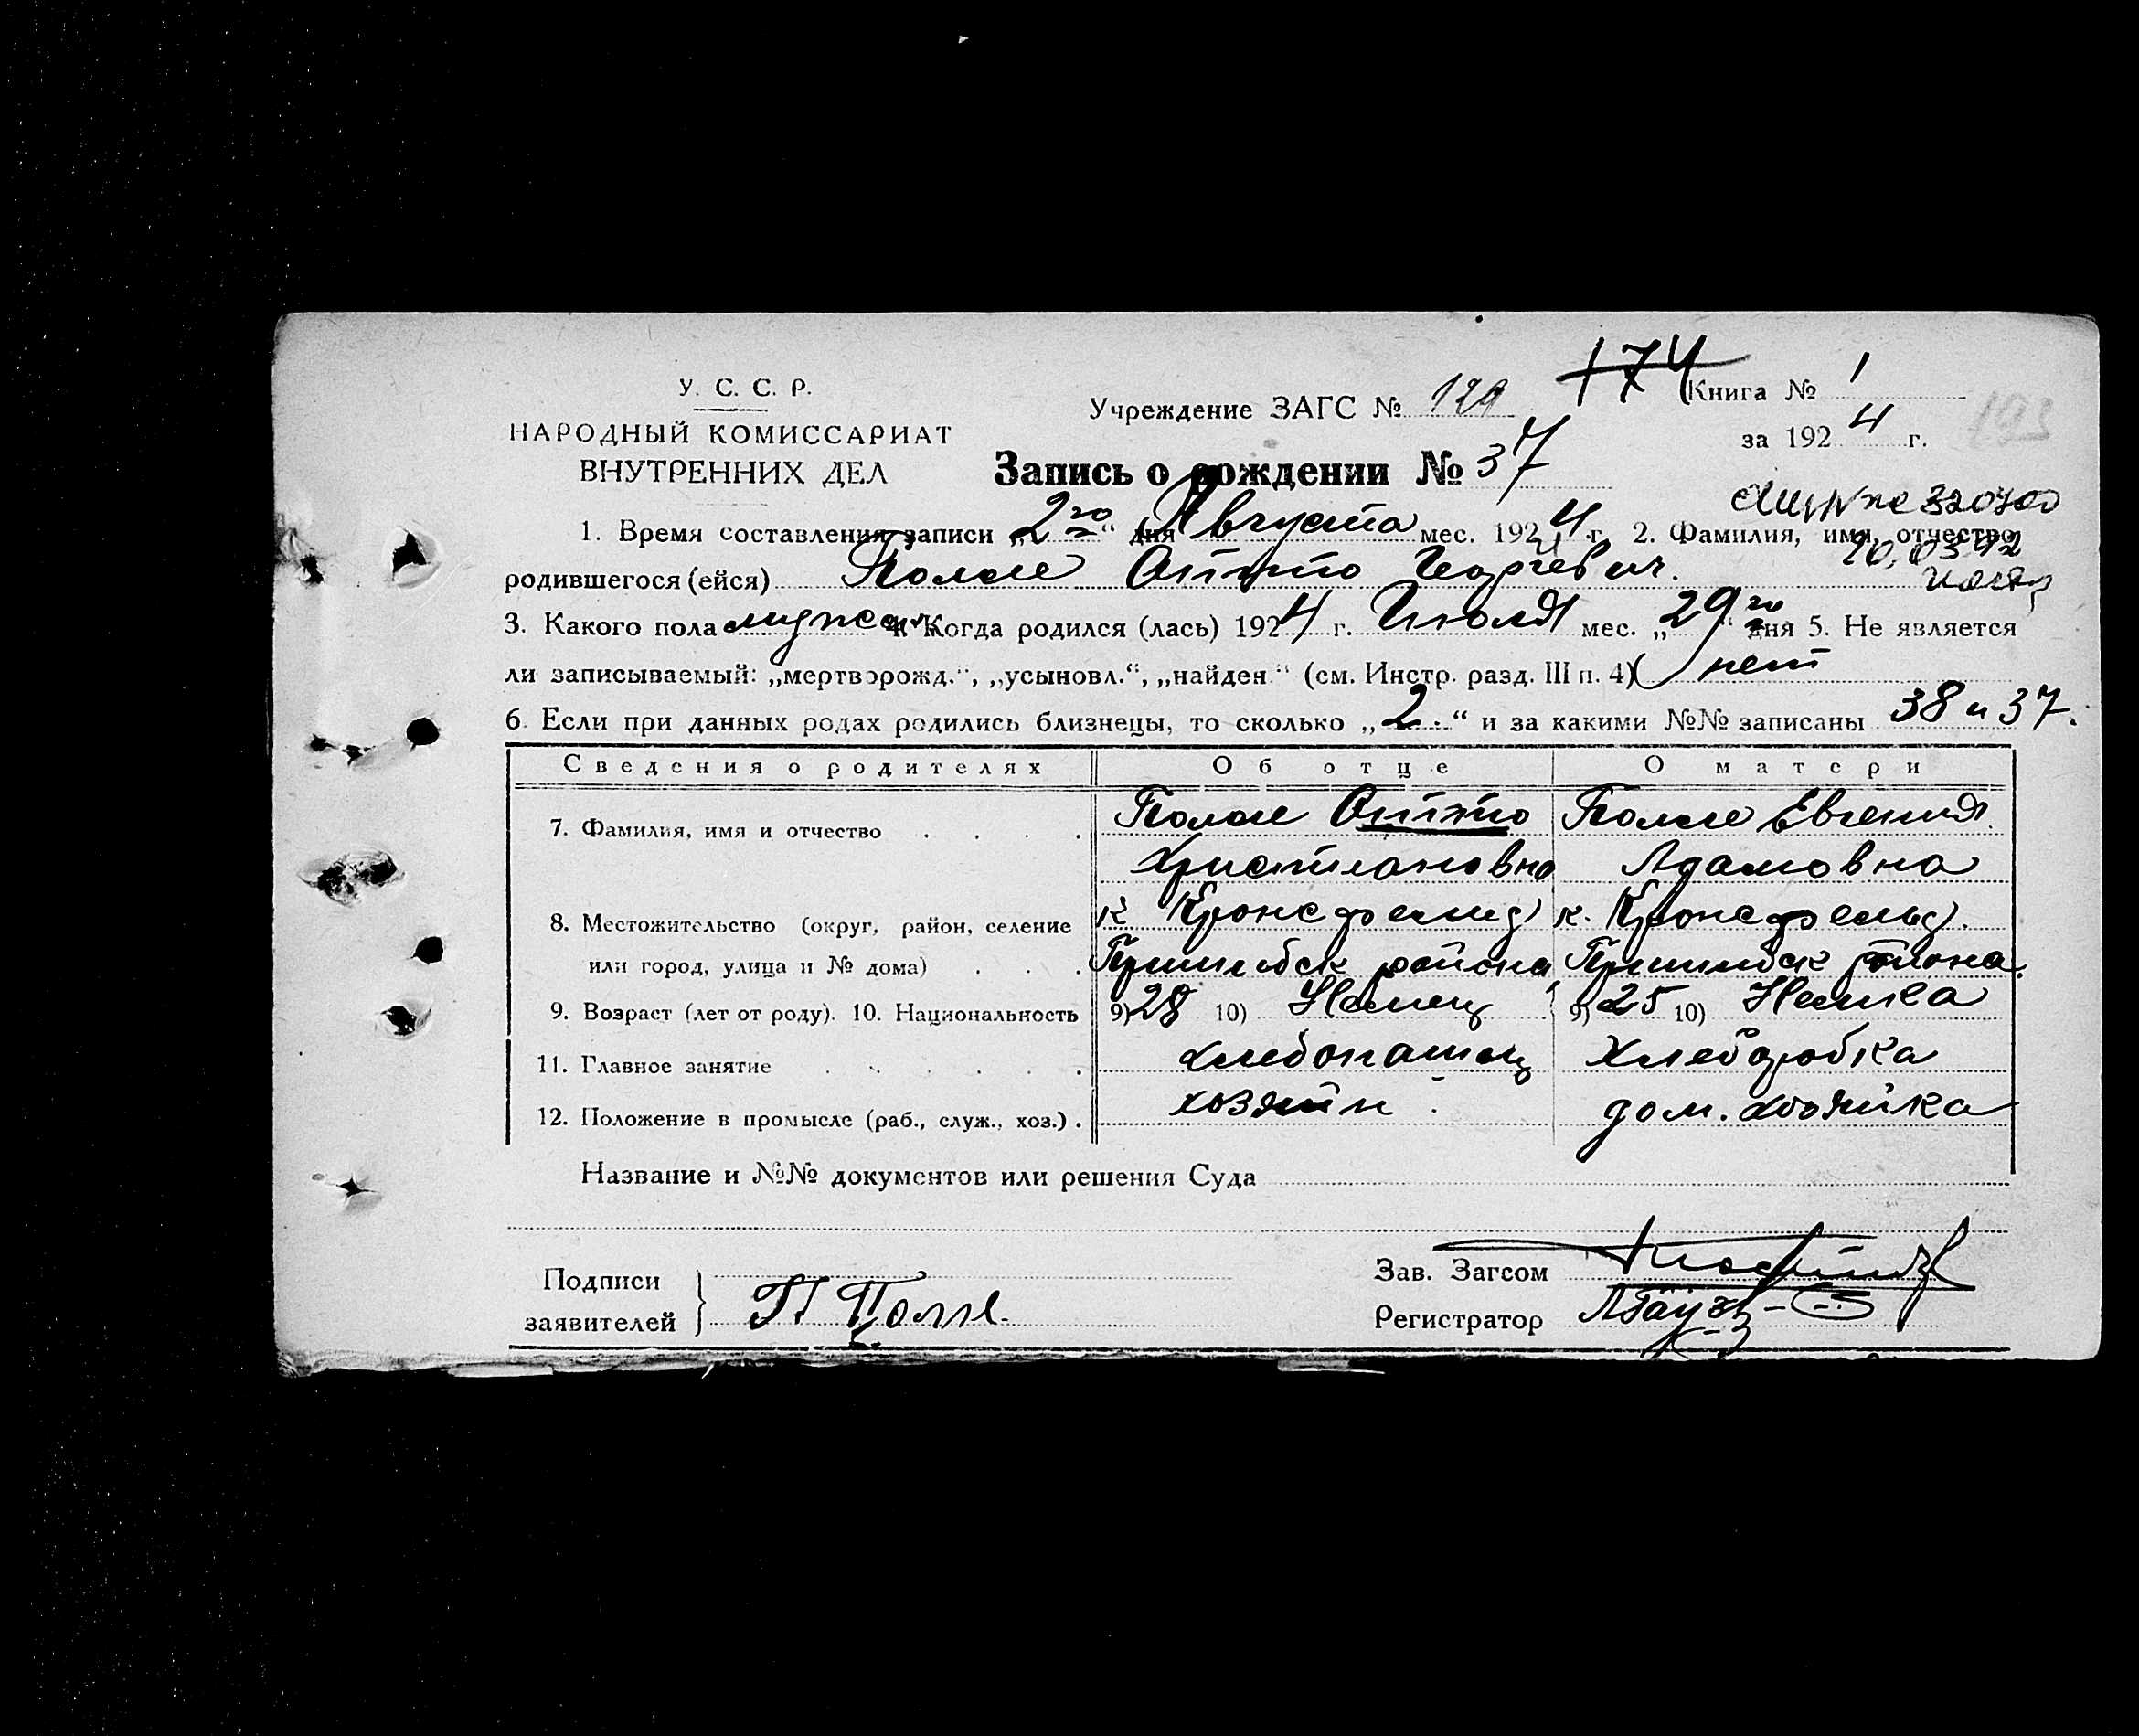 У. С. С. Р.
НАРОДНЫЙ КОМИССАРИАТ
ВНУТРЕННИХ ДЕЛ
Учреждение ЗАГС №
174
Книга № 1
за 1924 г.
193
Запись о рождении № 37
1. Время составления записи „2го“ дня Августа мес. 1924 г. 2. Фамилия, имя, отчество
родившегося (ейся) Полле Оттто
3. Какого пола мужск. 4. Когда родился (лась) 1924 г. Июля мес. „29го“ дня 5. Не является
ли записываемый: „мертворожд.“, „усыновл.“, „найден.“ (см. Инстр. разд. III п. 4) нет
6. Если при данных родах родились близнецы, то сколько „2.“ и за какими №№ записаны 38 и 37.
Сведения о родителях Об отце О матери
7. Фамилия, имя и отчество Полле Оттто Полле Евгения
Христиановна Адамовна
8. Местожительство (округ, район, селение к Кронсфельд к. Кронсфельд.
или город, улица и № дома) Пришибск района Пришибск района.
9. Возраст (лет от роду). 10. Национальность 9) 28 10) Немец 9) 25 10) Немка
11. Главное занятие хлебопашец Хлеборобка
12. Положение в промысле (раб., служ., хоз.) . хозяин . дом. хозяйка
Название и №№ документов или решения Суда
Подписи
заявителей П Полле.
Зав. Загсом
Регистратор